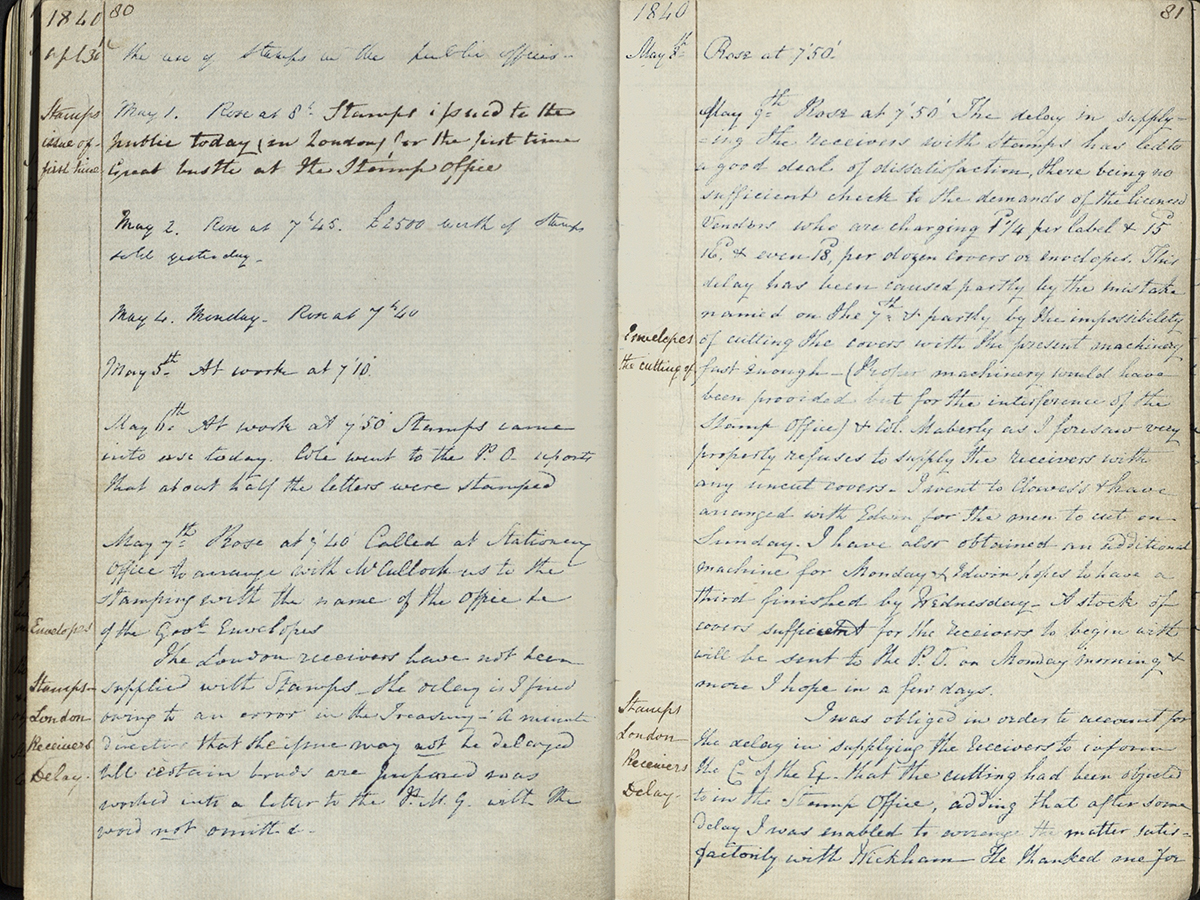 1840 80
Apl 30 the use of Stamps in the public offices.
Stamps May 1. Rose at 8h Stamps issued to the
issue of public today (in London) for the first time
first time Great bustle at the Stamp Office
May 2. Rose at 7h 45. £2500 worth of Stamps
sold yesterday.
May 4. Monday. Rose at 7h 40
May 5th At work at 7'10.
May 6th At work at 7'50' Stamps came
into use today. Cole went to the P.O. reports
that about half the letters were stamped
May 7th Rose at 7'40' Called at Stationery
Office to arrange with McCullock as to the
stamping with the name of the Office &c
Envelopes of the Govt Envelopes
The London receivers have not been
Stamps supplied with Stamps – the delay is I find
London owing to an error in the Treasury – A minute
Receivers directing that the issue may not be delayed
Delay. till certain bonds are prepared was
worked into a letter to the P.M.G. with the
word not omitted.
1840 81
May 8th Rose at 7'50'.
May 9th Rose at 7'50' The delay in supply-
-ing the receivers with Stamps has led to
a good deal of dissatisfaction, there being no
sufficient check to the demands of the licenced
Vendors who are charging 1 1/4 per label & 15d
16d, & even 18d, per dozen covers or envelopes. This
delay has been caused partly by the mistake
named on the 7th & partly by the impossibility
Envelopes of cutting the covers with the present machinery
the cutting of fast enough – (Proper machinery would have
been provided but for the interference of the
Stamp Office) & Col. Maberly as I foresaw very
properly refuses to supply the receivers with
any uncut covers – I went to Clowes's & have
arranged with Edwin for the men to cut on
Sunday. I have also obtained an additional
machine for Monday & Edwin hopes to have a
third finished by Wednesday – A stock of
covers sufficient for the receivers to begin with
will be sent to the P.O. on Monday morning &
more I hope in a few days.
Stamps I was obliged in order to account for
London the delay in supplying the receivers to inform
Receivers the C. of the Ex. that the cutting had been objected
Delay. to in the Stamp Office, adding that after some
delay I was enabled to arrange the matter satis-
factorily with Wickham – He thanked me for